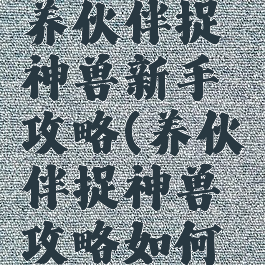 养伙伴捉
神兽新手
攻略(养伙
伴捉神兽
攻略如何